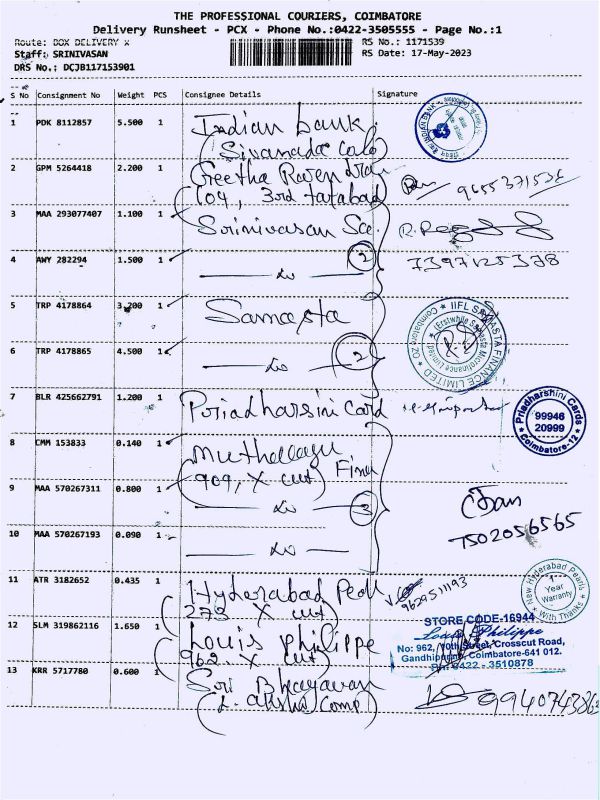 THE PROFESSIONAL COURIERS, COIMBATORE
Delivery Runsheet - PCX - Phone No.:0422-3505555 - Page No.:1
Route: BOX DELIVERY x
RS No.: 1171539
Staff: SRINIVASAN
RS Date: 17-May-2023
DRS No.: DCJB117153901
S No Consignment No Weight PCS Consignee Details Signature
1 PDK 8112857 5.500 1 Indian bank
(Sivanada
2 GPM 5264418 2.200 1 Geetha
104, 3rd tatabad 9655371526
3 MAA 293077407 1.100 1 Srinivasan
4 AWY 282294 1.500 1 2 7397125378
5 TRP 4178864 3.200 1 Samasta
IIFL SAMASTA FINANCE LIMITED
(Erstwhile Samasta Microfinance Limited)
6 TRP 4178865 4.500 1 2
7 BLR 425662791 1.200 1 Priadharsini Card
Priadharshini Cards
99946
20999
Coimbatore-12
8 CMM 153833 0.140 1
(909, X cut)
9 MAA 570267311 0.800 1 3
7502056565
10 MAA 570267193 0.090 1
11 ATR 3182652 0.435 1 Hyderabad
(273 X cut)
9629511193
New Hyderabad Pearls
1 Year
Warranty
With Thanks
12 SLM 319862116 1.650 1 Louis Philippe
(962 X cut)
STORE CODE-16944
Louis Philippe
No: 962, 10th Street, Crosscut Road,
Gandhipuram, Coimbatore-641 012.
Ph: 0422 - 3510878
13 KRR 5717780 0.600 1 Sri
9940743863